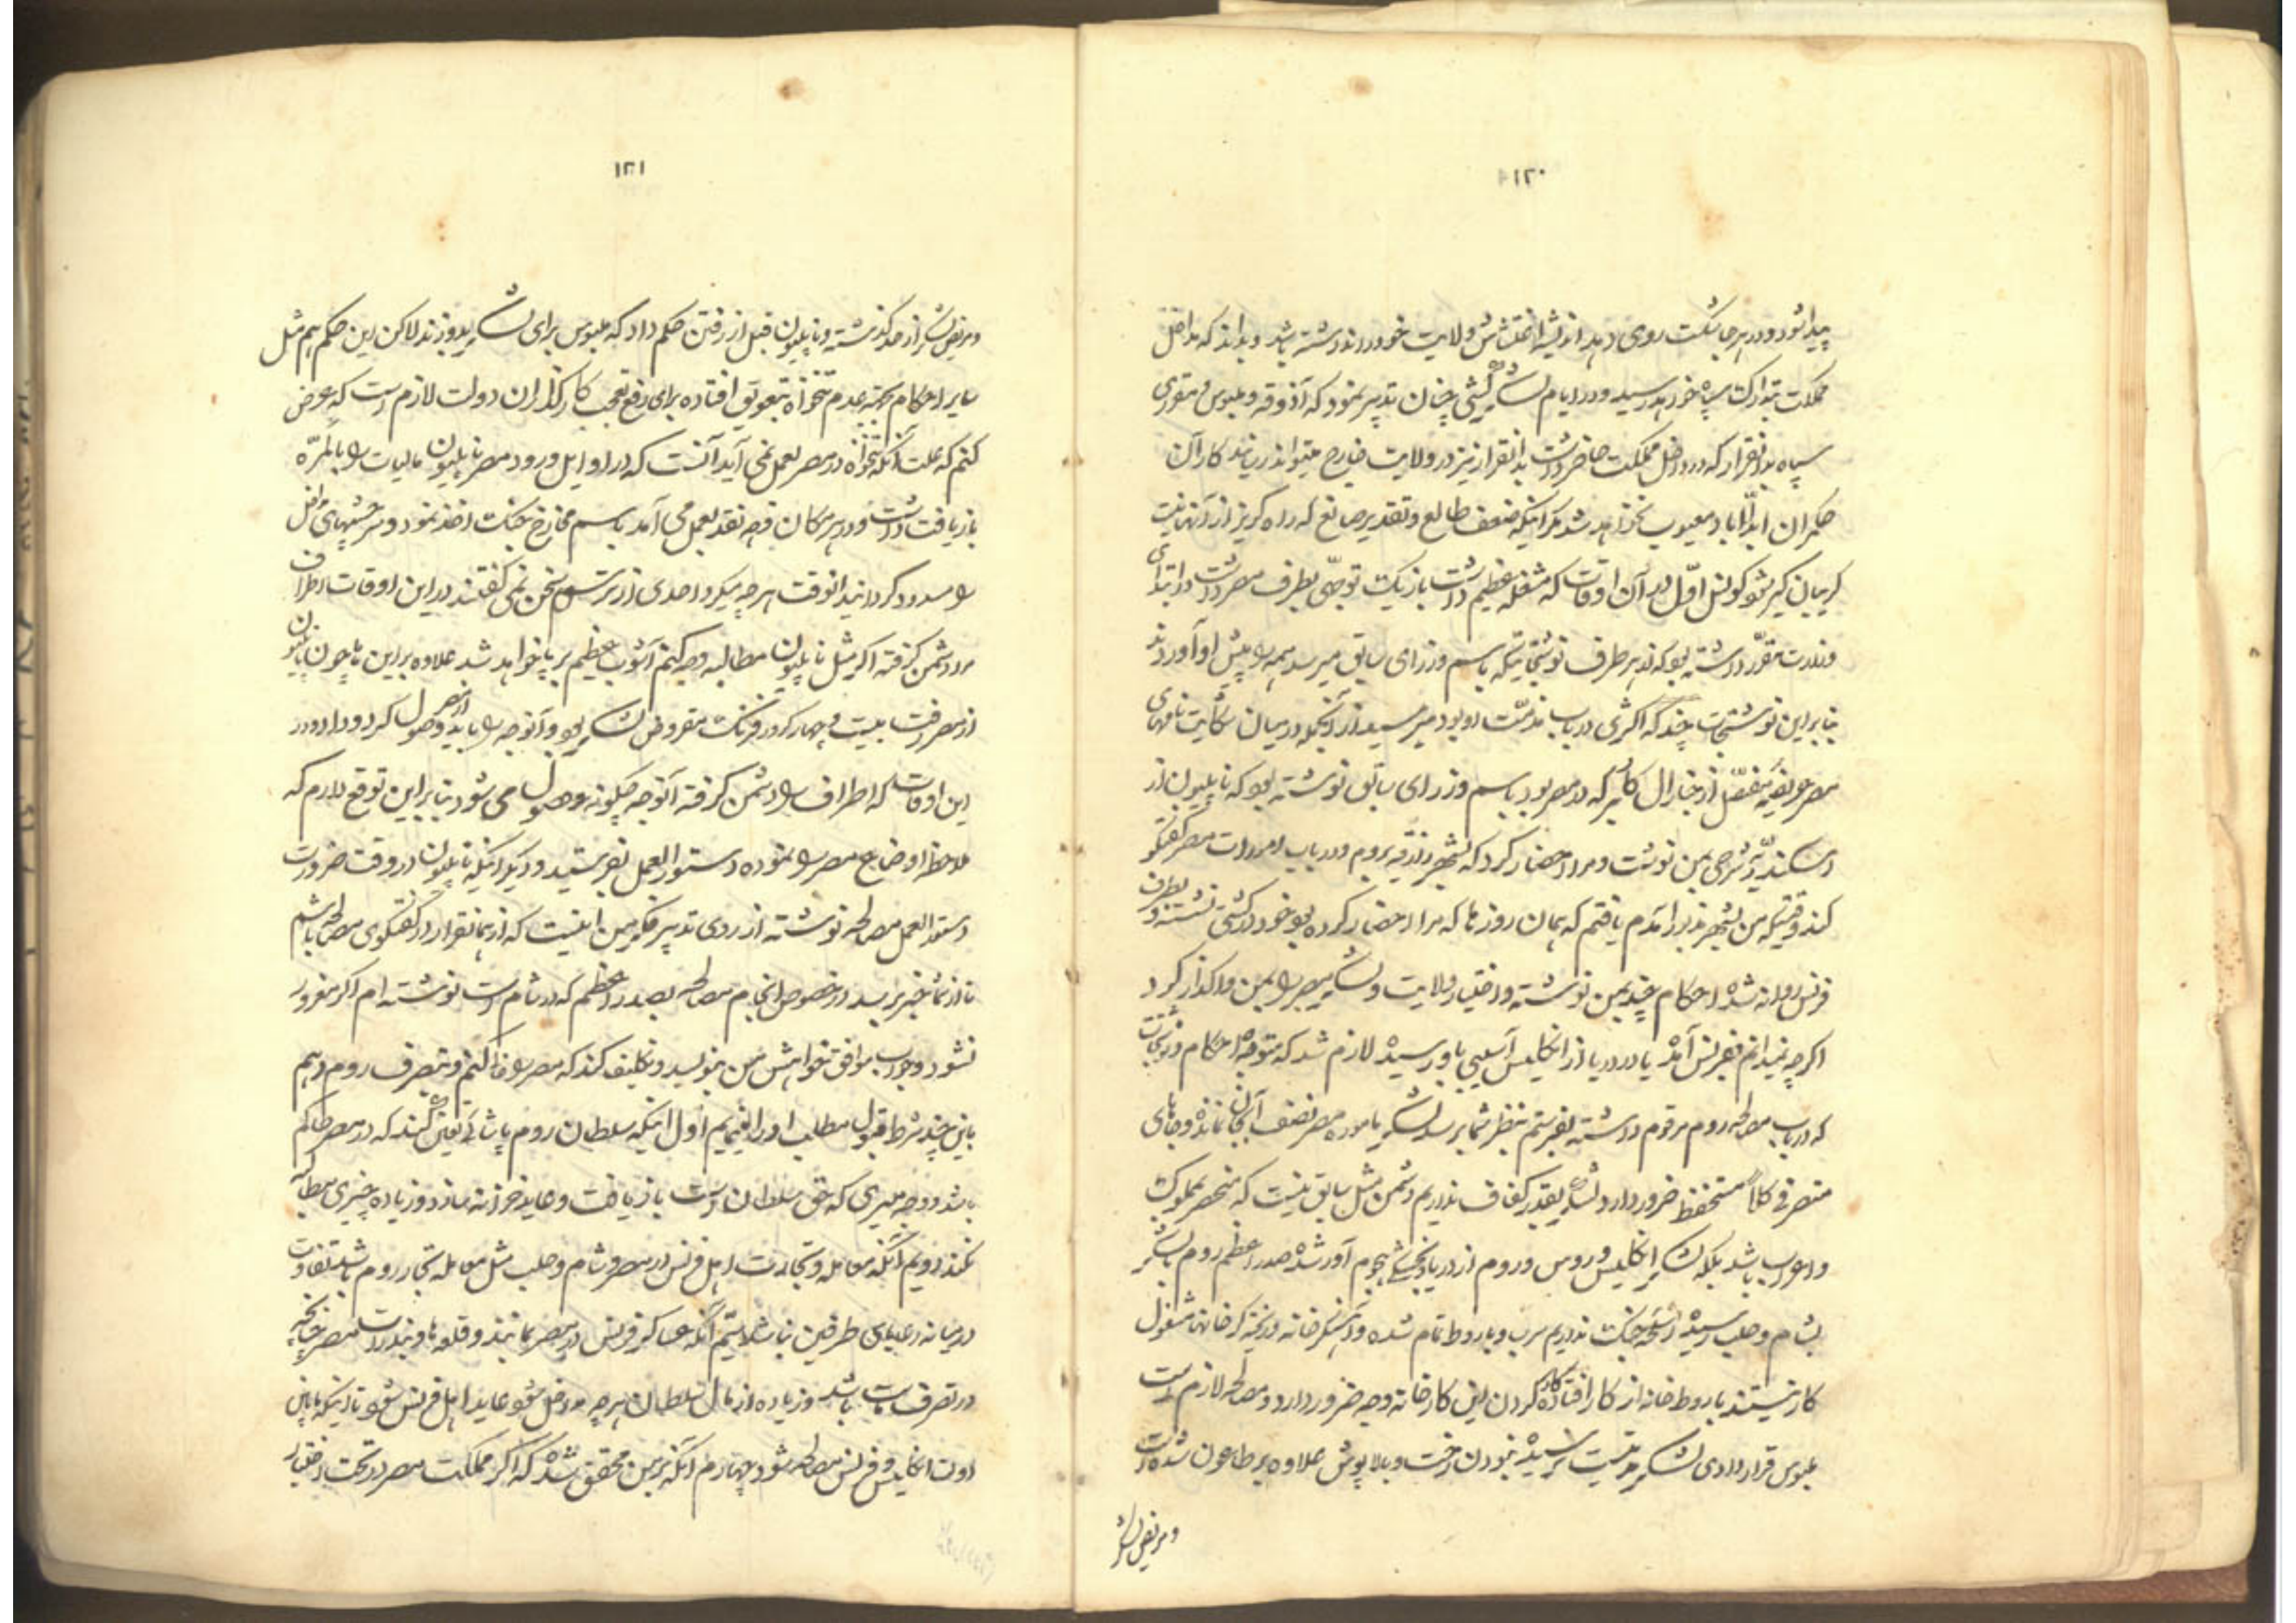 ۱۲۰
پیدا شود و در هر جا شکست روی دهد اندیشه اغتشاش ولایت خود را نداشته باشد و بداند که مداخل
مملکت بتدارک سپاه خواهد رسید و در ایام لشکرکشی چنان تدبیر نمود که آذوقه و ملبوس و مقرری
سپاه بدانقرار که در داخل مملکت حاضر داشت بدانقرار نیز در ولایت خارج میتواند رسانید کار آن
حکمران ابدالاباد معیوب نخواهد شد مگر اینکه ضعف طالع و تقدیر صانع که راه گریز از آنها نیست
گریبان گیر شود کونسل اوّل در آن اوقات که مشغله عظیم داشت باز یک توجّهی بطرف مصر داشت در ابتدای
وزارت مقرّر داشته بود که از هر طرف نوشتجاتیکه باسم وزرای سابق میرسد همه را پیش او آوردند
بنابراین نوشتجات چند که اکثری در باب مذمّت او بود میرسید از آنجمله در میان شکایت نامهای
مصر عریضه مفصّل از جنارال کلبر که در مصر بود باسم وزرای سابق نوشته بود که ناپلیون از
اسکندریّه شرحی بمن نوشت و مرا احضار کرد که بشهر بروم و در باب امورات مصر گفتگو
کند وقتیکه من بشهر مزبور آمدم یافتم که همان روزها که مرا احضار کرده بود خود در کشتی نشسته و بطرف
فرنس روانه شده احکام چند بمن نوشته و اختیار ولایت و لشکر مصر را بمن واگذار کرد
اگرچه نمیدانم بفرنس آمده یا در دریا از انگلیس آسیبی باو رسیده لازم شد که متوجه احکام و نوشتجات
که در باب مصالحه روم مرقوم داشته بفرستم بنظر شما برسد لشکر ماموره مصر نصف آنجا نمانده و جاهای
متصرفی کلاً مستحفظ ضرور دارد و لشکر بقدر کفاف نداریم دشمن مثل سابق نیست که منحصر بمملوک
و اعراب باشد بلکه لشکر انگلیس و روس و روم از دریا و خشکی هجوم آور شده صدر اعظم روم با لشکر
بشام و حلب رسیده اسلحه جنگ نداریم سرب و باروط تمام شده و آهنگرخانه و ریخته گرخانها مشغول
کار نیستند باروط خانه از کار افتاده کار کردن این کارخانه وجه ضرور دارد و مصالحه لازم است
ملبوس قراردادی لشکر مدتیست نرسیده نبودن رخت و بالاپوش علاوه بر طاعون شده است
و مریض لشکر
۱۲۱
و مریض لشکر از حد گذشته و ناپلیون قبل از رفتن حکم داد که ملبوس برای لشکر بدوزند لاکن این حکم هم مثل
سایر احکام بجهة عدم تنخواه بتعویق افتاده برای رفع تعجب کارگذاران دولت لازم است که عرض
کنم که علت آنکه تنخواه در مصر بعمل نمی آید آنست که در اوایل ورود مصر ناپلیون مالیات را بالمرّه
بازیافت داشت و در هر مکان وجه نقد بعمل می آمد باسم مخارج جنگ اخذ نمود و سرچشمهای مداخل
را مسدود گردانید انوقت هرچه میکرد احدی از ترس سخن نمی گفتند در این اوقات اطراف
مرا دشمن گرفته اگر مثل ناپلیون مطالبه وجه کنم آشوب عظیم برپا خواهد شد علاوه بر این ها چون ناپلیون
از مصر رفت بیست و چهار کرور فرنک مقروض لشکر بود و آنوجه را باید از مصر وصول کرد و داد و در
این اوقات که اطراف را دشمن گرفته آنوجه چگونه وصول می شود بنابراین توقع دارم که
ملاحظه اوضاع مصر را نموده دستورالعمل بفرستید و دیگر اینکه ناپلیون در وقت ضرورت
دستورالعمل مصالحه نوشته از روی تدبیر فکر من اینست که از همانقرار در گفتگوی مصالحه باشم
تا از شما خبر برسد در خصوص انجام مصالحه بصدر اعظم که در شام است نوشته ام اگر مغرور
نشود و جواب موافق خواهش من بنویسد و تکلیف کند که مصر را خالی کنم و بتصرف روم دهم
باین چند شرط قبول مطلب او را نمایم اول اینکه سلطان روم پاشائی تعیین کند که در مصر حاکم
باشد و وجه میری که حق سلطان است بازیافت و عاید خزانه سازد و زیاده چیزی مطالبه
نکند دویم آنکه معامله و تجارت اهل فرنس در مصر و شام و حلب مثل معامله تجار روم باشد تفاوت
در میانه رعایای طرفین نباشد سیّم آنکه عساکر فرنس در مصر بمانند و قلعه ها و بندرات مصر چنانچه
در تصرف ماست باشد و زیاده از مال سلطان هرچه مداخل شود عاید اهل فرنس شود تا اینکه مابین
دولت انگلیس و فرنس مصالحه شود چهارم آنکه بر من محقق شده که اگر مملکت مصر در تحت اختیار